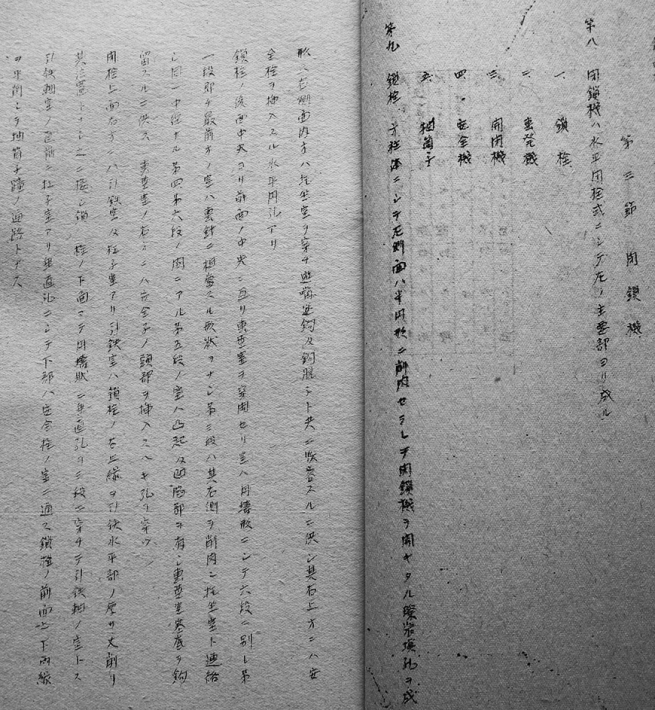 第三節 閉鎖機
第八 閉鎖機ハ水平閉栓式ニシテ左ノ主要部ヨリ成ル
一、鎖栓
二、撃発機
三、開閉機
四、安全機
五、抽筒子
第九 鎖栓ハ 栓体ニシテ左側面ハ半円形ニ削肉セラレテ閉鎖機ヲ開キタル際装填孔ヲ成
形ス右側面 方ハ 坐室ヲ穿チ 及 ト共ニ スルニ供シ其右上方ニハ安
全栓ヲ挿入スル水平円孔アリ
鎖栓ノ後面中央ヨリ前面ノ中央ニ亘リ撃茎室ヲ穿開セリ室ハ円壔形ニシテ六段ニ別レ第
一段即チ最前ノ室ハ撃針ニ相当スル形状ヲナシ第三段ハ其右側ヲ削肉シ 坐室ト連絡
シ同一中径ナル第四第六段ノ間ニアル第五段ノ室ハ凸起及凹陥部ヲ有シ撃茎室塞底ヲ鉤
留スルニ供ス 撃茎室ノ右方ニハ ノ頭部ヲ挿入スヘキ孔ヲ穿ツ
閉栓上面右方ニハ引鉄室及 室アリ引鉄室ハ鎖栓ノ右上縁ヲ引鉄水平部ノ厚サ丈削リ
其 ニ ニ 鎖栓ノ下面マテ円壔状ニ垂直孔ヲ二段ニ穿チテ引鉄軸ノ室トス
引鉄軸室ノ直前ニ 子室アリ垂直孔ニシテ下部ハ安全栓ノ室ニ通ス鎖栓ノ前面上下両縁
ヲ 開シテ抽筒子蹄ノ通路トナス